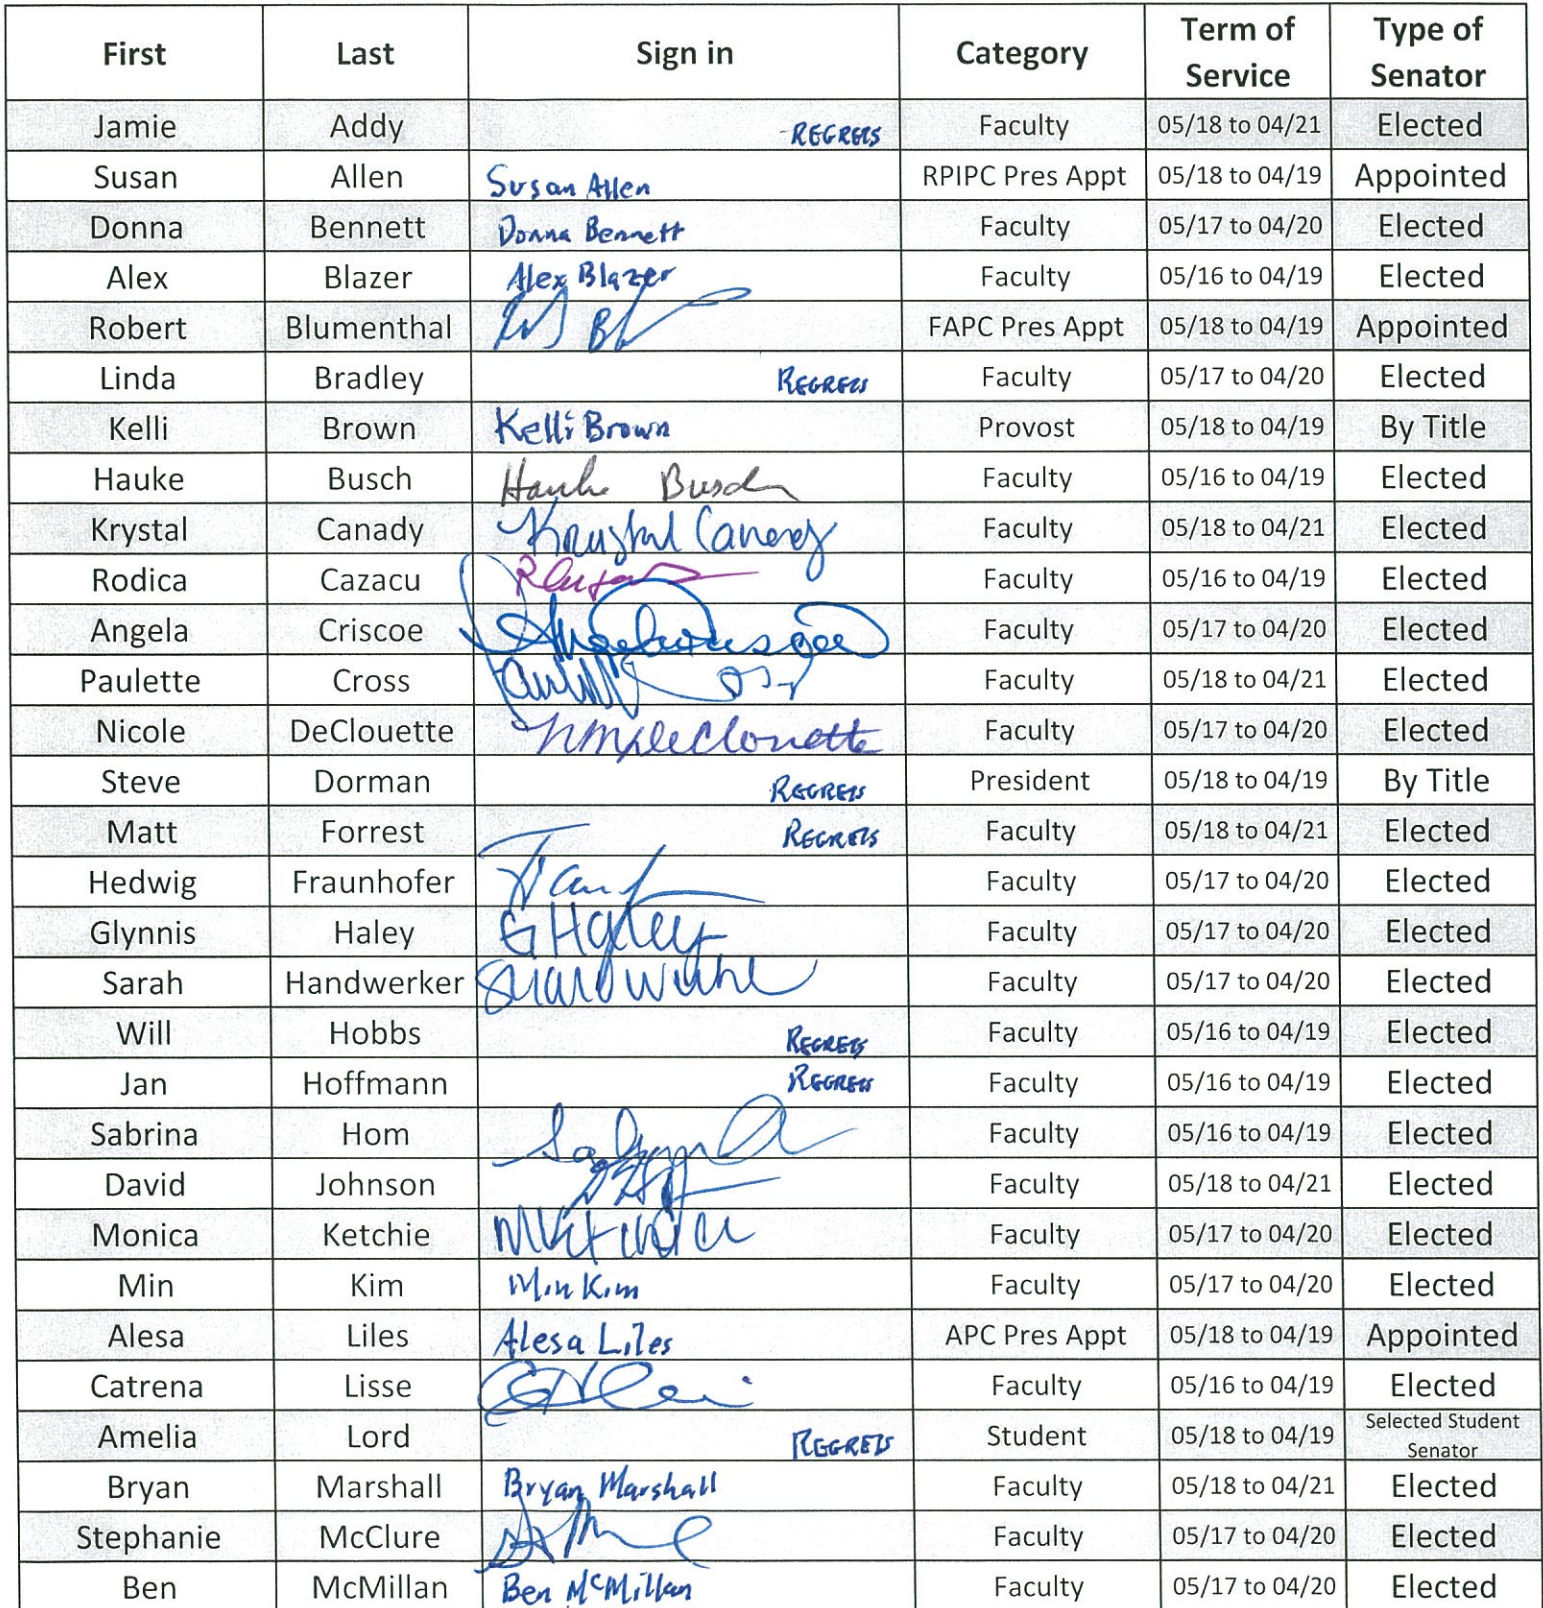 First Last Sign in Category Term of Service Type of Senator
Jamie Addy REGRETS Faculty 05/18 to 04/21 Elected
Susan Allen Susan Allen RPIPC Pres Appt 05/18 to 04/19 Appointed
Donna Bennett Donna Bennett Faculty 05/17 to 04/20 Elected
Alex Blazer Alex Blazer Faculty 05/16 to 04/19 Elected
Robert Blumenthal FAPC Pres Appt 05/18 to 04/19 Appointed
Linda Bradley REGRETS Faculty 05/17 to 04/20 Elected
Kelli Brown Kelli Brown Provost 05/18 to 04/19 By Title
Hauke Busch Hauke Busch Faculty 05/16 to 04/19 Elected
Krystal Canady Krystal Canady Faculty 05/18 to 04/21 Elected
Rodica Cazacu Faculty 05/16 to 04/19 Elected
Angela Criscoe Angela Criscoe Faculty 05/17 to 04/20 Elected
Paulette Cross Faculty 05/18 to 04/21 Elected
Nicole DeClouette Faculty 05/17 to 04/20 Elected
Steve Dorman REGRETS President 05/18 to 04/19 By Title
Matt Forrest REGRETS Faculty 05/18 to 04/21 Elected
Hedwig Fraunhofer Faculty 05/17 to 04/20 Elected
Glynnis Haley G Haley Faculty 05/17 to 04/20 Elected
Sarah Handwerker Faculty 05/17 to 04/20 Elected
Will Hobbs REGRETS Faculty 05/16 to 04/19 Elected
Jan Hoffmann REGRETS Faculty 05/16 to 04/19 Elected
Sabrina Hom Faculty 05/16 to 04/19 Elected
David Johnson Faculty 05/18 to 04/21 Elected
Monica Ketchie Faculty 05/17 to 04/20 Elected
Min Kim Min Kim Faculty 05/17 to 04/20 Elected
Alesa Liles Alesa Liles APC Pres Appt 05/18 to 04/19 Appointed
Catrena Lisse Faculty 05/16 to 04/19 Elected
Amelia Lord REGRETS Student 05/18 to 04/19 Selected Student Senator
Bryan Marshall Bryan Marshall Faculty 05/18 to 04/21 Elected
Stephanie McClure Faculty 05/17 to 04/20 Elected
Ben McMillan Ben McMillan Faculty 05/17 to 04/20 Elected